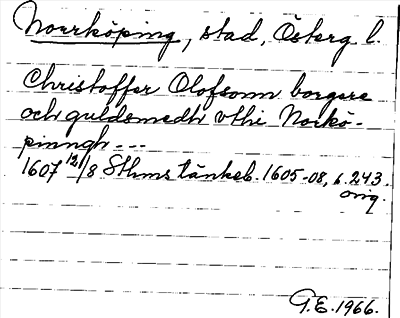 Norrköping, stad, Österg. l.
Christoffer Olofsonn borgere
och guldsmedh vthi Norkö-
pinngh ---
1607 12/8 Sthms tänkeb. 1605-08, s. 243.
orig.
G.E. 1966.